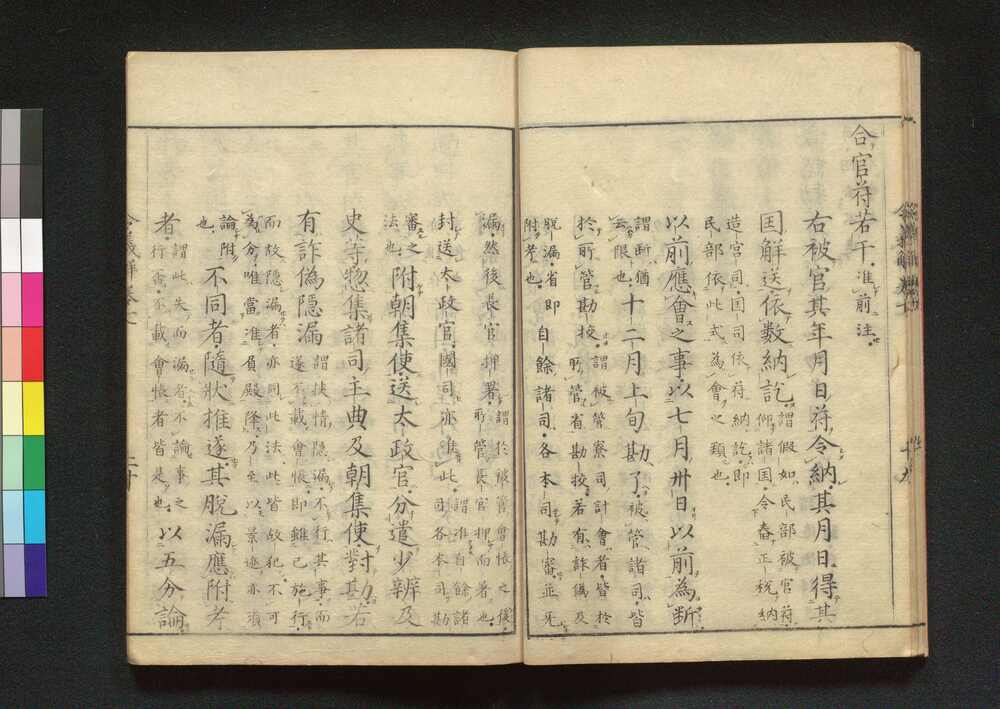 合官符若干准前注
右被官其年月日符令納其月日得其
国解送依数納訖謂假如民部被官符
仰諸国令舂正税納
造宮司国司依符納訖即
民部依此式為會之類也
以前應會之事以七月卅日以前為断
謂断猶
云限也十二月上旬勘了被管諸司皆
於所管勘挍謂被管寮司計會者皆於
所管省勘挍若有詐偽及
脱漏省即
附考也自餘諸司各本司勘審並无
漏然後長官押署謂於被管會帳之後
所管長官押而署也
封送太政官國司亦准此謂准自餘諸
司各本司勘
審之
法也附朝集使送太政官分遣少辨及
史等惣集諸司主典及朝集使對勘若
有詐偽隠漏謂挟情隠漏不行其事而
遂不載會帳即雖已施行
而故隠漏者亦同此法此皆故犯不可
為分唯當准負殿降乃至以景迹亦須
論附
也不同者隨狀推逐其脱漏應附考
者謂此失而漏者不論事之
行否不載會帳者皆是也以五分論